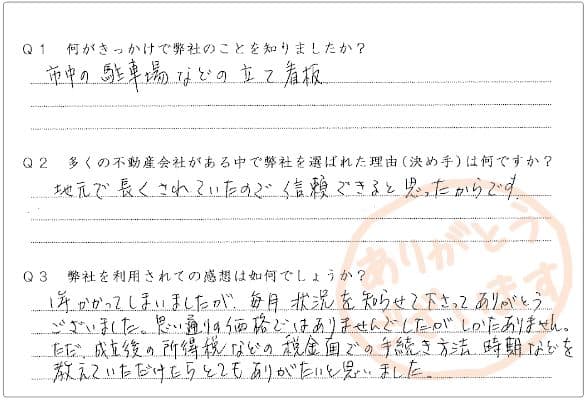 Q1 何がきっかけで弊社のことを知りましたか?
市中の駐車場などの立て看板
Q2 多くの不動産会社がある中で弊社を選ばれた理由(決め手)は何ですか?
地元で長くされていたので信頼できると思ったからです。
Q3 弊社を利用されての感想は如何でしょうか?
1年かかってしまいましたが、毎月状況を知らせて下さってありがとう
ございました。思い通りの価格ではありませんでしたがしかたありません。
ただ、成立後の所得税などの税金面での手続き方法、時期などを
教えていただけたらとてもありがたいと思いました。
ありがとう
ございます